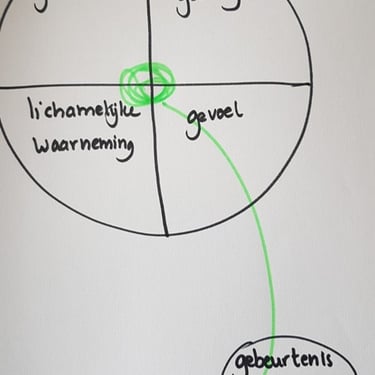 lichamelijke
waarneming
gevoel
gebeurtenis